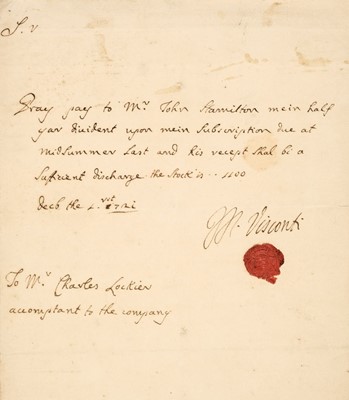 S.r
Pray pay to Mr John Hamilton mein half
yar divident upon mein Subscription due at
midsummer Last and his recept shal be a
sufficient discharge the stock is .. 1100
Decb the 1721
M. Visconti
To Mr Charles Lockier
accomptant to the company